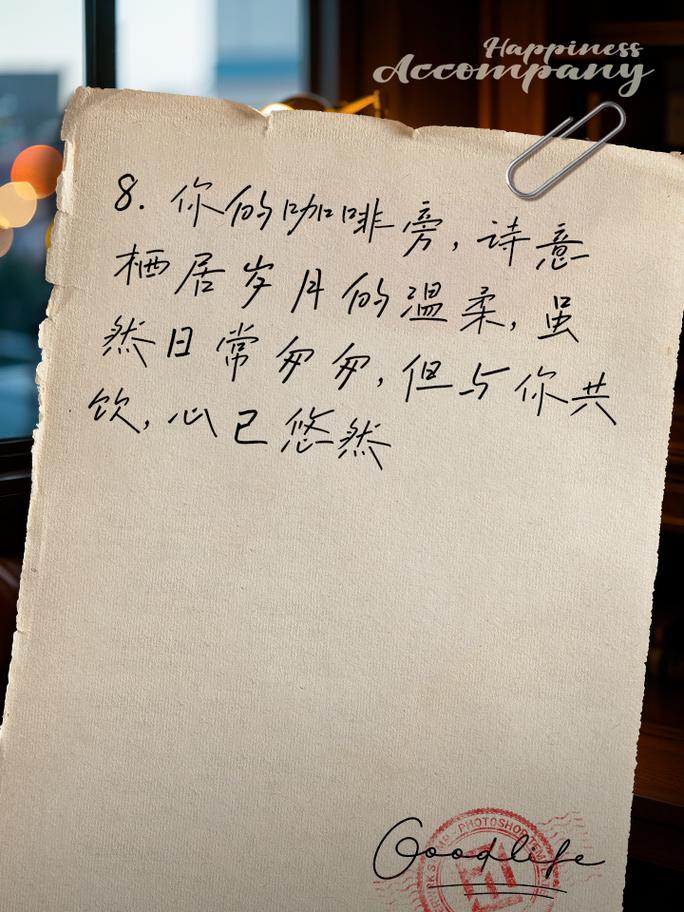 Happiness
Accompany
8. 你的咖啡旁,诗意
栖居岁月的温柔,虽
然日常匆匆,但与你共
饮,心已悠然
PHOTOSHOP
Goodlife